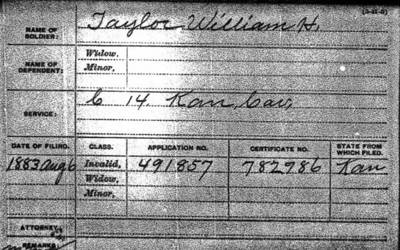 (3-415)
NAME OF SOLDIER: Taylor William H.
NAME OF DEPENDENT: Widow,
Minor,
SERVICE: C 14. Kan. Cav,
DATE OF FILING. CLASS. APPLICATION NO. CERTIFICATE NO. STATE FROM WHICH FILED.
1883 Aug 6 Invalid, 491857 782986 Kan
Widow,
Minor,
ATTORNEY:
REMARKS: